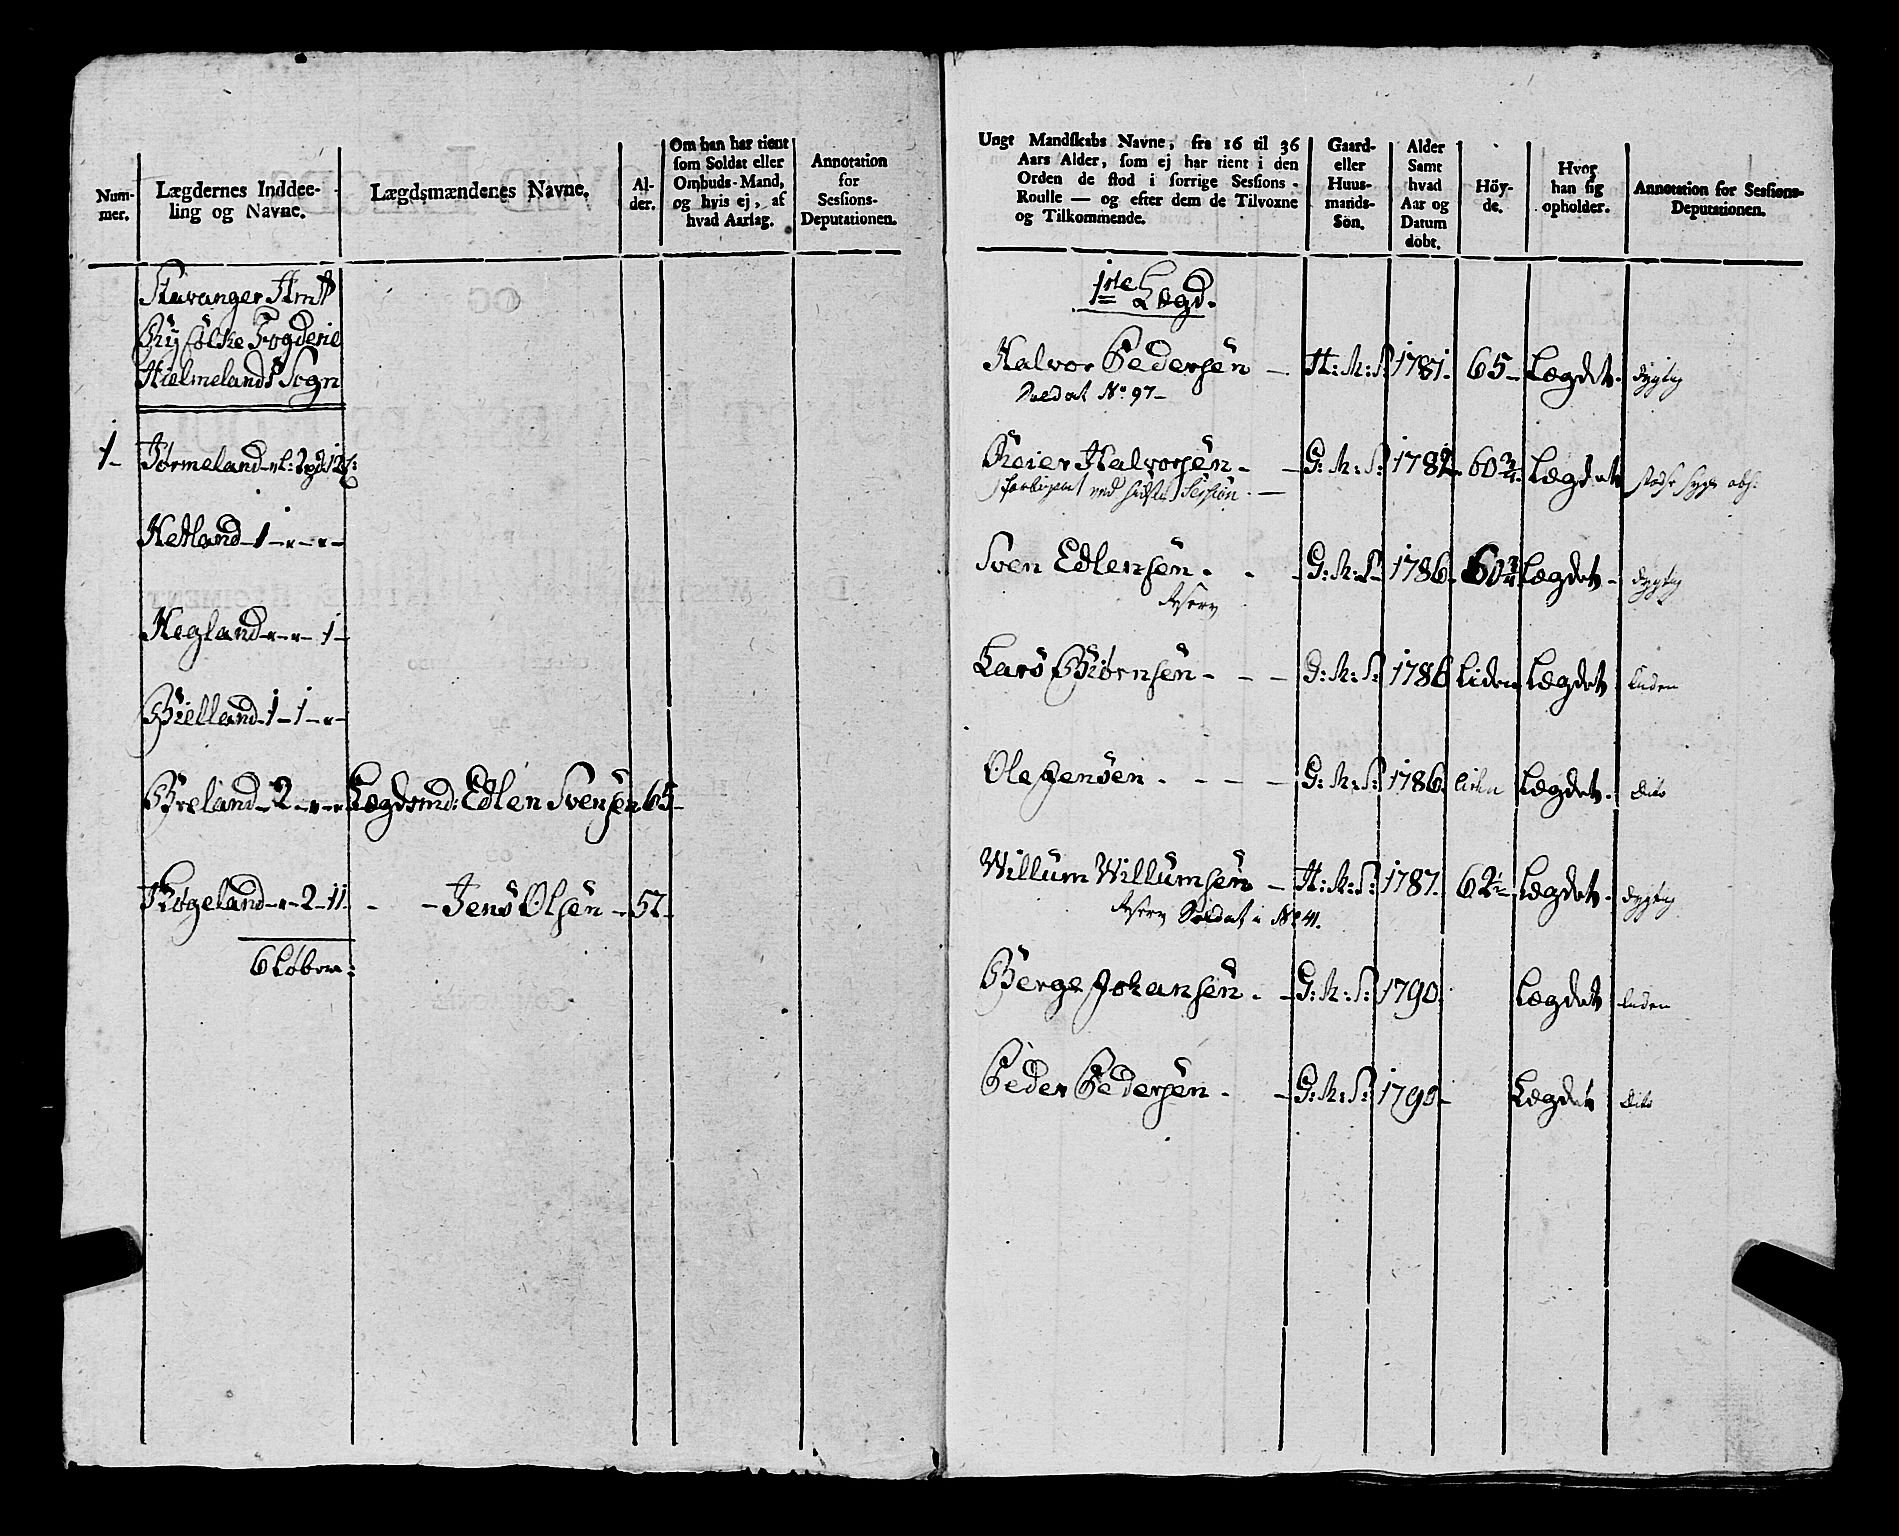 Num-
mer.
Lægdernes Inddee-
ling og Navne.
Lægdsmændenes Navne.
Al-
der.
Om han har tient
som Soldat eller
Ombuds-Mand,
og hvis ej, af
hvad Aarlag.
Annotation
for
Sessions-
Deputationen.
Stavanger Amt
Ryfølke Fogderie
Hielmelands Sogn
1 - Førmeland
Hetland - 1 - " - " -
Hegland - " - " - 1 -
Bielland - 1 - 1 - " -
Breland - 2 - " - " Lægdsmd: Edlen Svensen 65 -
Skøgeland - " - 2 - 11. - - Jens Olsen - 57 -
6 Løber:
Ungt Mandskabs Navne, fra 16 til 36
Aars Alder, som ej har tient i den
Orden de stod i forrige Sessions-
Roulle — og efter dem de Tilvoxne
og Tilkommende.
Gaard-
eller
Huus-
mands-
Sön.
Alder
Samt
hvad
Aar og
Datum
dobt.
Höy-
de.
Hvor
han sig
opholder.
Annotation for Sessions-
Deputationen.
1ste Lægd.
Halvor Pedersen - H: M: S: 1781. 65 - Lægdet. dygtig
Soldat No. 97 -
Reier Halvorsen. - G: M: S: 1782 60 3/4. Lægdet
forbigaaet ved sidste Session. -
Sven Edlensen. - G: M: S. 1786. 60 3/4 Lægdet - dygtig
Reserv
Lars Biørnsen - - - G: M: S: 1786 Liden Lægdet Liden
Ole Jensen. - - - G: M: S: 1786. liden Lægdet. dito
Willum Willumsen - H: M: S: 1787. 62 1/2 Lægdet. dygtig
Reserv Soldat i No 41.
Berge Johansen. - G: M: S: 1790. Lægdet liden
Peder Pedersen. - G: M: S: 1790 - Lægdet dito